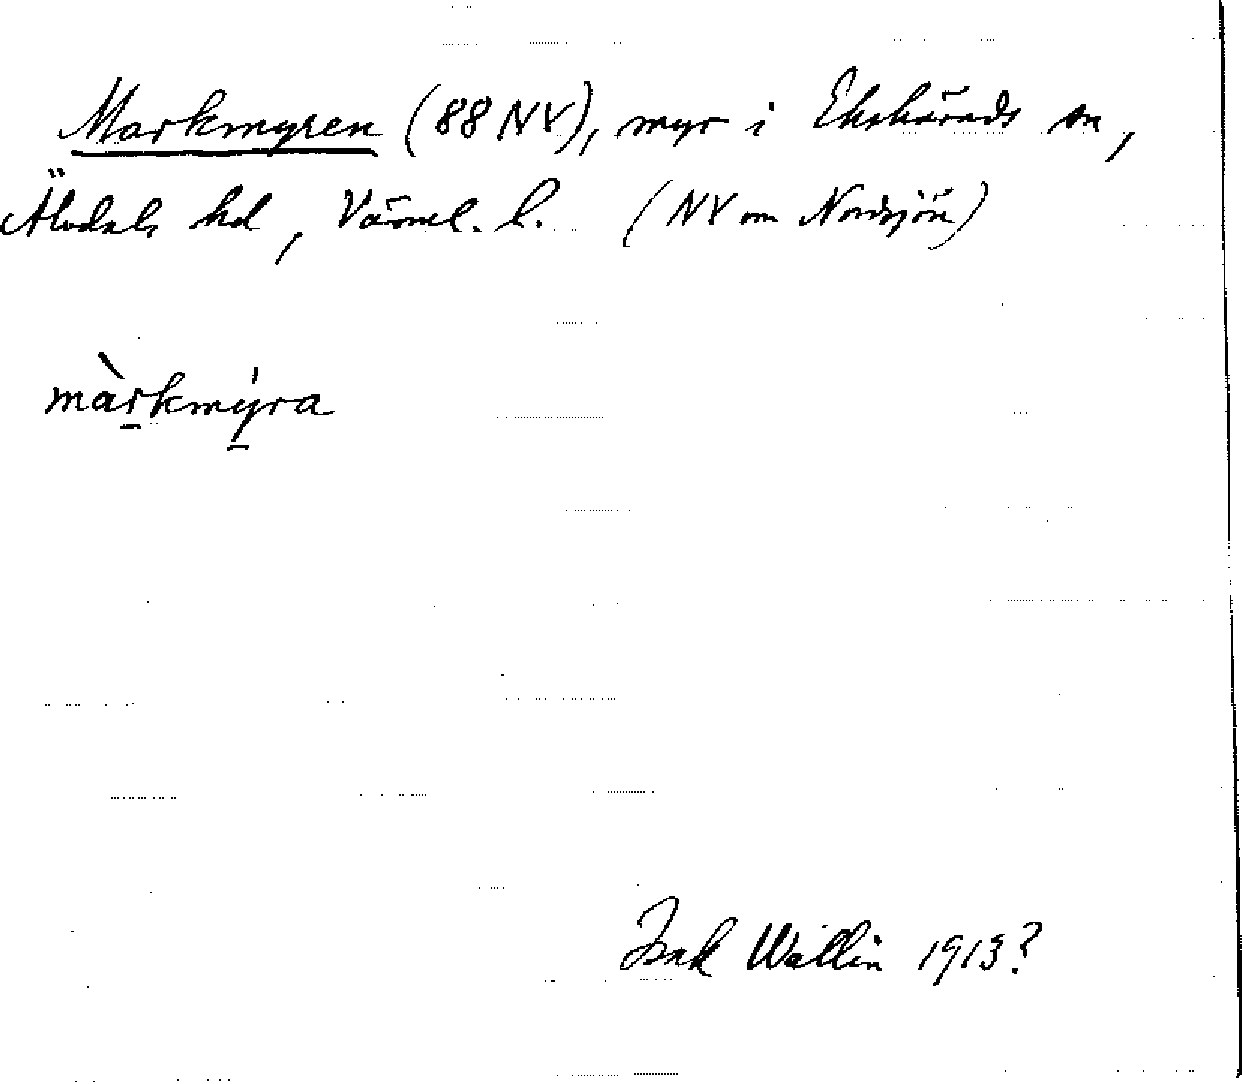 Markmyren (88 NV), myr i Ekshärads sn,
Älvdals hd, Värml. l. (NV om Nordsjön)
màr̠kmy̠̍ra
Isak Wallin 1913?